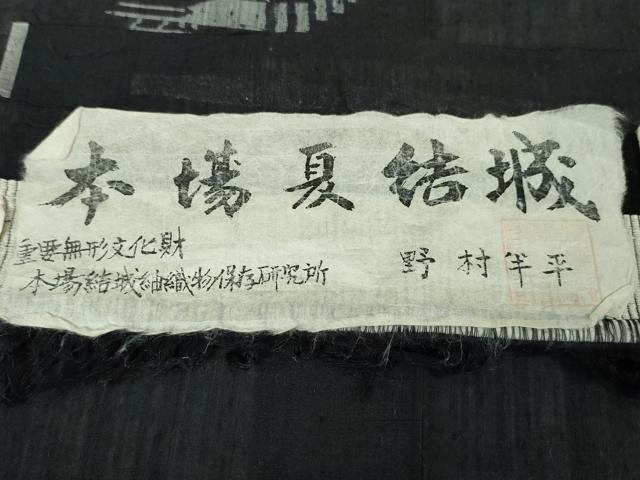 本場夏結城
重要無形文化財
本場結城紬織物保存研究所
野村半平